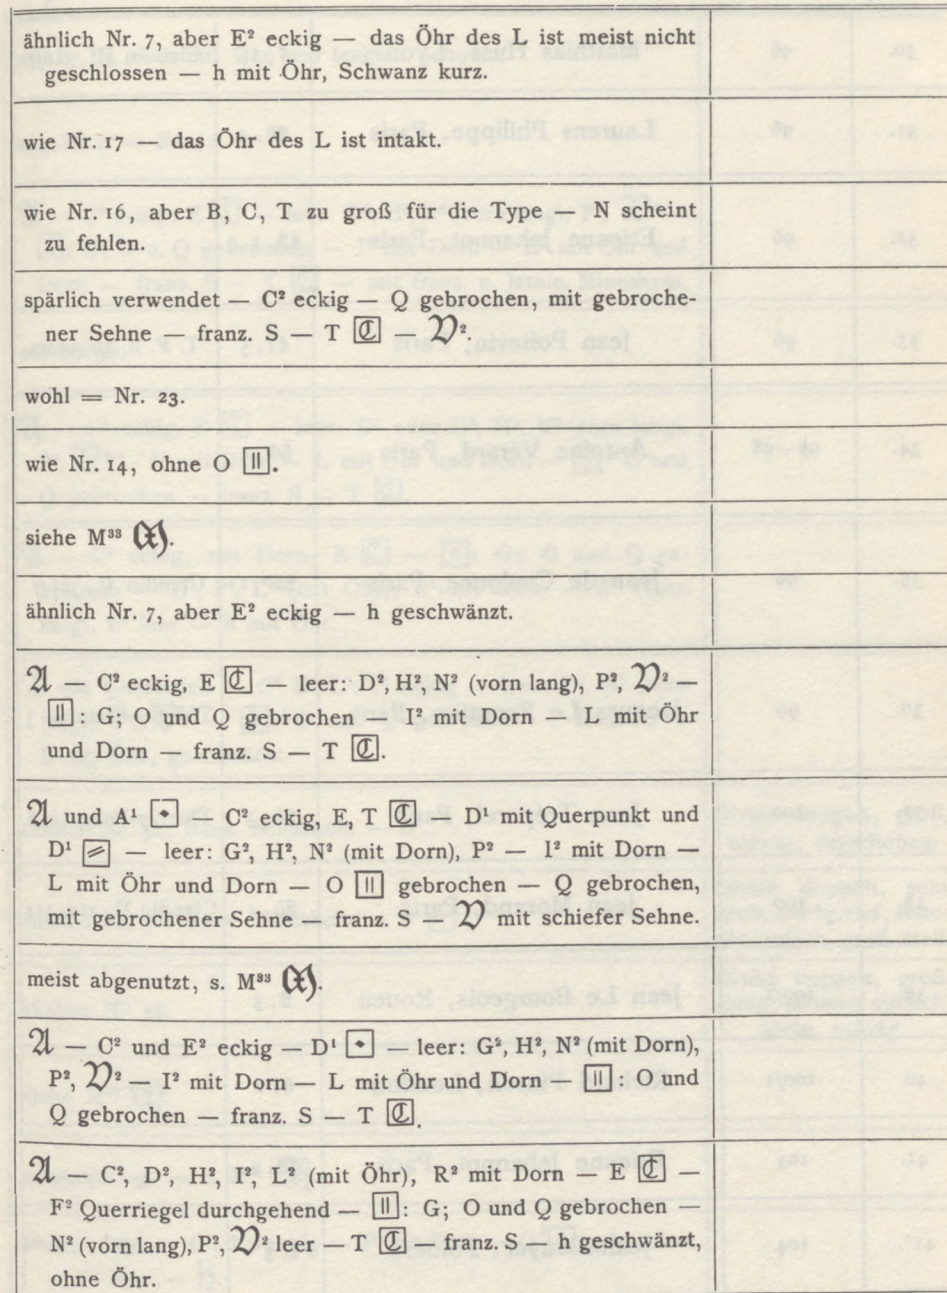 ähnlich Nr. 7, aber E² eckig — das Öhr des L ist meist nicht
geschlossen — h mit Öhr, Schwanz kurz.
wie Nr. 17 — das Öhr des L ist intakt.
wie Nr. 16, aber B, C, T zu groß für die Type — N scheint
zu fehlen.
spärlich verwendet — C² eckig — Q gebrochen, mit gebroche-
ner Sehne — franz. S — T ℭ — 𝔙².
wohl = Nr. 23.
wie Nr. 14, ohne O ||.
siehe M³³ (𝔛).
ähnlich Nr. 7, aber E² eckig — h geschwänzt.
𝔄 — C² eckig, E ℭ — leer: D², H², N² (vorn lang), P², 𝔙² —
||: G; O und Q gebrochen — I² mit Dorn — L mit Öhr
und Dorn — franz. S — T ℭ.
𝔄 und A¹ — C² eckig, E, T ℭ — D¹ mit Querpunkt und
D¹ — leer: G², H², N² (mit Dorn), P² — I² mit Dorn —
L mit Öhr und Dorn — O || gebrochen — Q gebrochen,
mit gebrochener Sehne — franz. S — 𝔙 mit schiefer Sehne.
meist abgenutzt, s. M³³ (𝔛).
𝔄 — C² und E² eckig — D¹ — leer: G², H², N² (mit Dorn),
P², 𝔙² — I² mit Dorn — L mit Öhr und Dorn — ||: O und
Q gebrochen — franz. S — T ℭ.
𝔄 — C², D², H², I², L² (mit Öhr), R² mit Dorn — E ℭ —
F² Querriegel durchgehend — ||: G; O und Q gebrochen —
N² (vorn lang), P², 𝔙² leer — T ℭ — franz. S — h geschwänzt,
ohne Öhr.